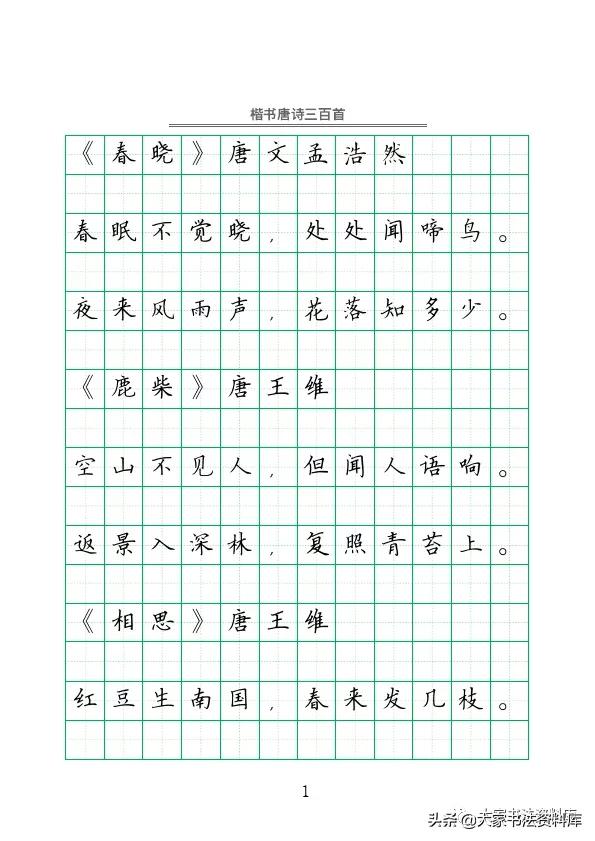 楷书唐诗三百首
《春晓》唐文孟浩然
春眠不觉晓，处处闻啼鸟。
夜来风雨声，花落知多少。
《鹿柴》唐王维
空山不见人，但闻人语响。
返景入深林，复照青苔上。
《相思》唐王维
红豆生南国，春来发几枝。
1
大家书法资料库
头条@大家书法资料库